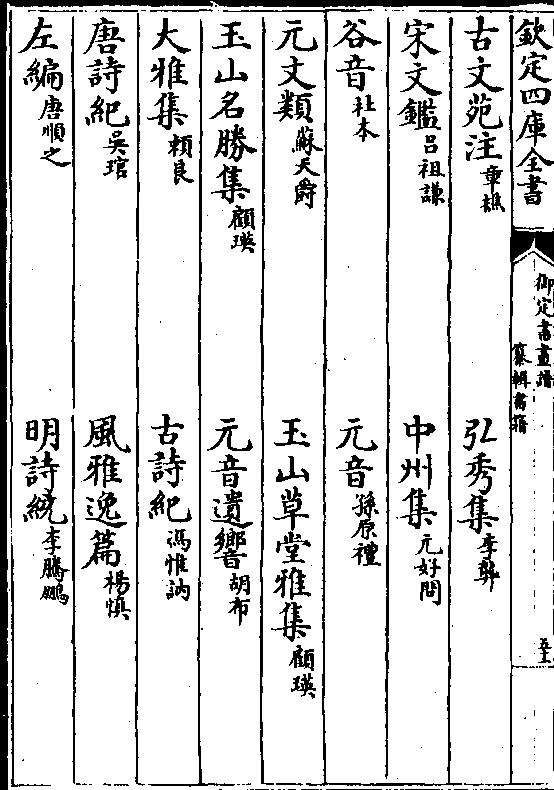 欽定四庫全書
御定書畫譜
纂輯書籍
五十
古文苑注 章樵 弘秀集 李龏
宋文鑑 呂祖謙 中州集 元好問
谷音 杜本 元音 孫原禮
元文類 蘇天爵 玉山草堂雅集 顧瑛
玉山名勝集 顧瑛 元音遺響 胡布
大雅集 頼良 古詩紀 馮惟訥
唐詩紀 吳琯 風雅逸篇 楊慎
左編 唐順之 明詩統 李騰鵬